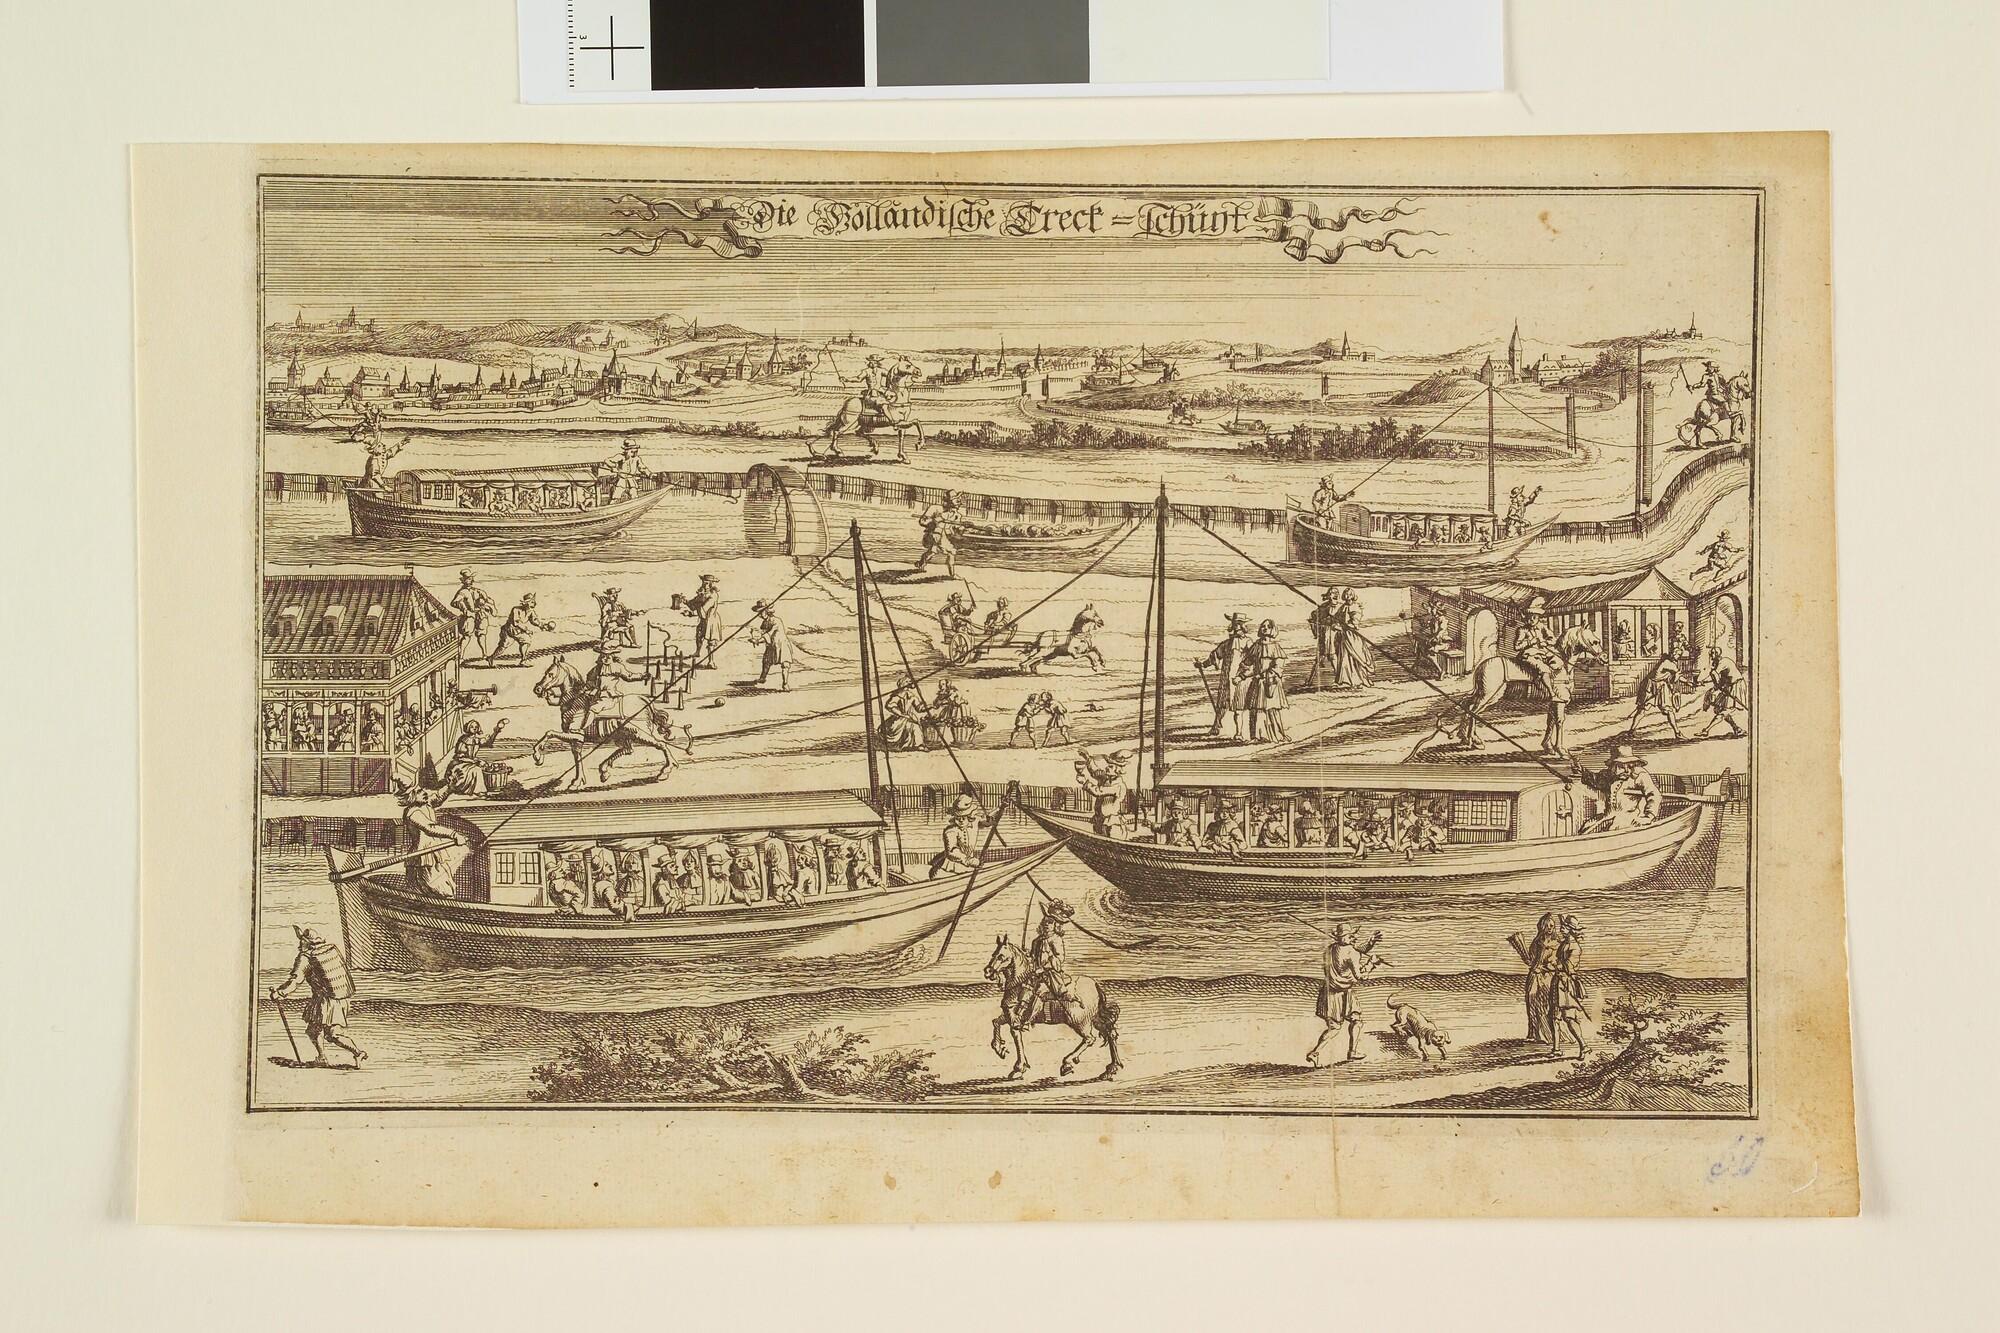 Die Holländische Treck=schüyt
3